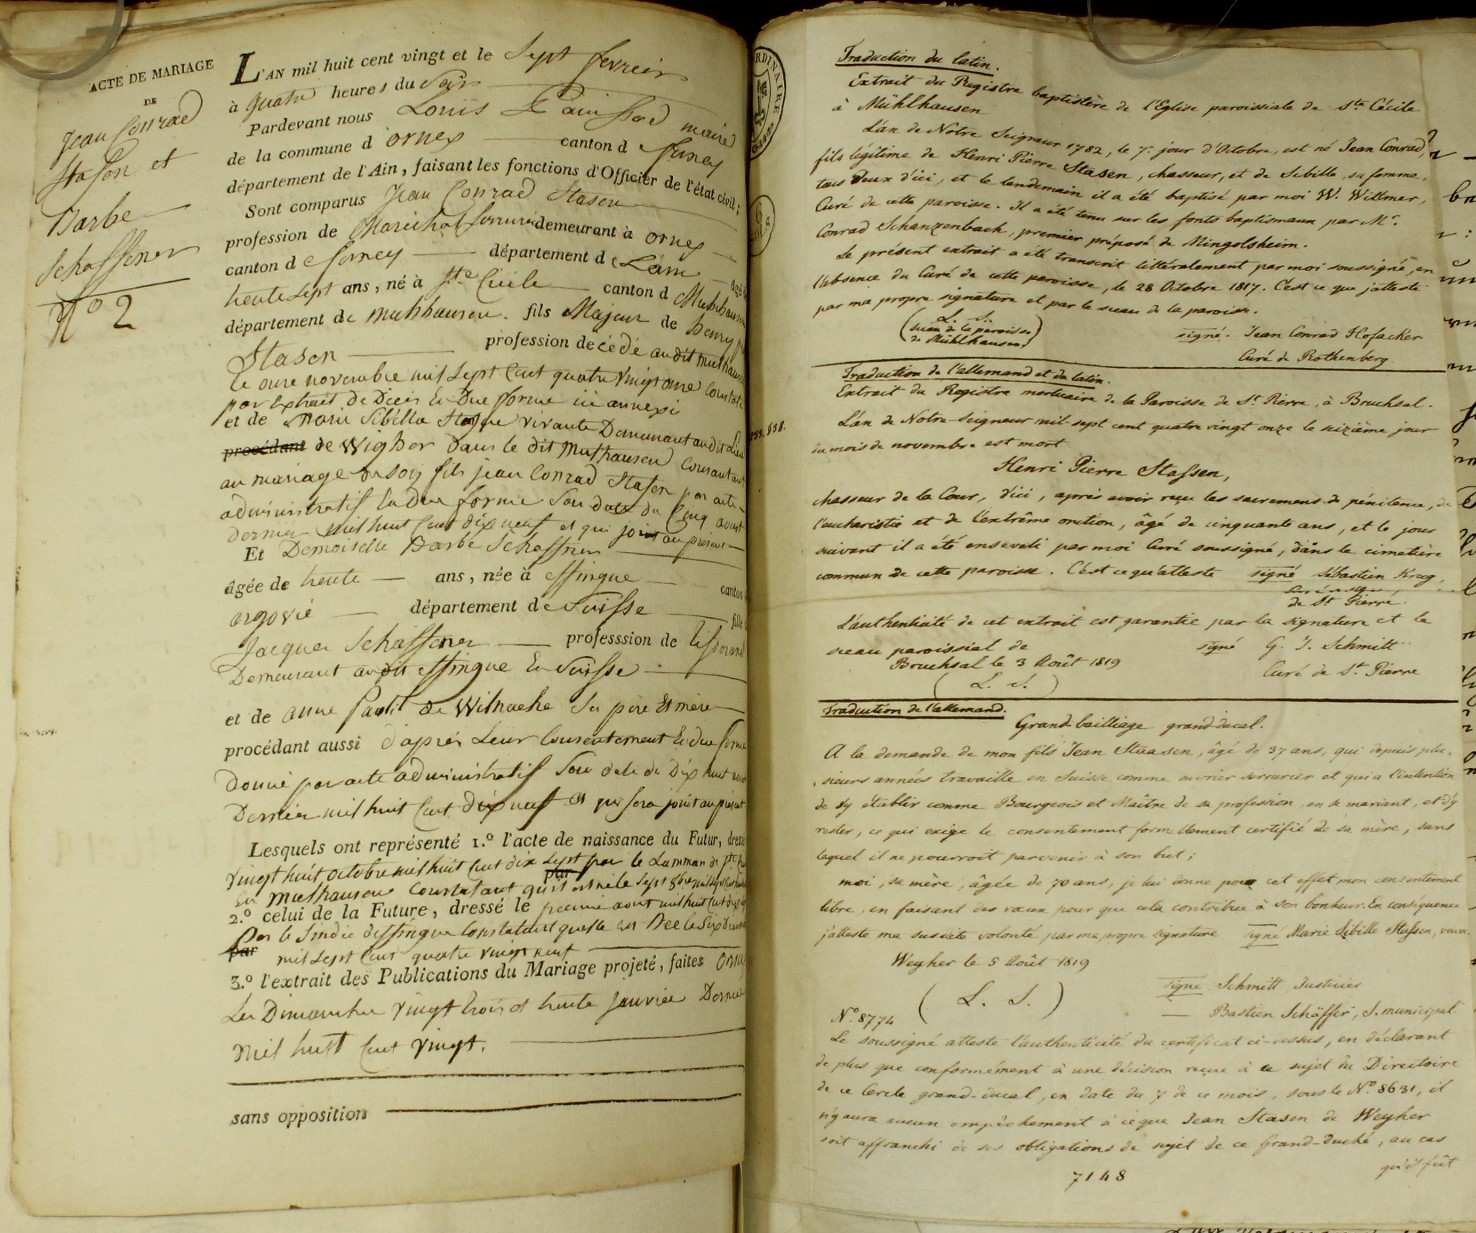 ACTE DE MARIAGE
DE
Jean Conrad
Stasen et
Barbe
Schaffener
N.º 2
L'AN mil huit cent vingt et le Sept fevrier
à quatre heures du Soir
Pardevant nous Louis
maire
de la commune d'ornex canton d ferney
département de l'Ain, faisant les fonctions d'Officier de l'état civil;
Sont comparus Jean Conrad Stasen
profession de Marechal Serrurier demeurant à ornex
canton de ferney département de L'ain âgé de
trente Sept ans, né à Ste Cécile canton d Mulhausen
département de mulhausen. fils Majeur de henry
Stasen profession decédé au dit mulhausen
le onze novembre mil Sept Cent quatre vingt onze Constaté
par Extrait de Décès En Due forme ici annexé
et de Marie Sibilla vivante Demeurant au dit Lieu
procédant de Wigher Dans le dit Mulhausen Consentant
au mariage de Son fils jean Conrad Stasen par acte
administratif En due forme Sou date du Cinq aoust
dernier mil huit Cent dix neuf et qui joint au présent
Et Demoiselle Barbe Schaffener
âgée de trente ans, née à Effingue canton
argovie département de Suisse fille
Jacques Schaffener professsion de
Demeurant au dit Effingue En Suisse
et de anne de Wilnache Ses père Et mère
procédant aussi d'après Leur Consentement En due forme
Donné par acte administratif Sou date de Dix huit
Dernier mil huit Cent dix neuf Et qui Sera joint au présent
Lesquels ont représenté 1.º l'acte de naissance du Futur, dressé
vingt huit octobre mil huit Cent dix Sept par le
par
mulhausen Constatant qu'il est né le Sept
2.º celui de la Future, dressé le premier aout mil huit Cent dix
par le Sindic d'Effingue Constatant qu'elle est Née le Six
par mil Sept Cent quatre vingt neuf
3.º l'extrait des Publications du Mariage projeté, faites Ornex
Les Dimanches vingt trois et trente Janvier Dernier
mil huit Cent vingt.
sans opposition
Traduction du latin.
Extrait du Registre baptistère de l'Eglise paroissiale de Ste Cécile
à Mühlhausen
L'an de Notre Seigneur 1782, le 7e jour d'Octobre, est né Jean Conrad,
fils légitime de Henri Pierre Stasen, chasseur, et de Sibille, sa femme,
tous deux d'ici, et le lendemain il a été baptisé par moi W. Wittmer,
Curé de cette paroisse. Il a été tenu sur les fonts baptismaux par Mr.
Conrad Schanzenbach, premier préposé de Mingolsheim.
Le présent extrait a été transcrit littéralement par moi soussigné, en
l'absence du Curé de cette paroisse, le 28 Octobre 1817. C'est ce que j'atteste
par ma propre signature et par le sceau de la paroisse.
( L. S.
sceau de la paroisse
de Mühlhausen )
signé. Jean Conrad Hofacker
Curé de Rothenberg
Traduction de l'allemand et du latin.
Extrait du Registre mortuaire de la Paroisse de St. Pierre, à Bruchsal.
L'an de Notre Seigneur mil sept cent quatre vingt onze le seizième jour
du mois de novembre est mort
Henri Pierre Stassen,
chasseur de la Cour, d'ici, après avoir reçu les sacremens de pénitence, de
l'eucharistie et de l'extrême onction, âgé de cinquante ans, et le jour
suivant il a été enseveli par moi Curé soussigné, dans le cimetière
commun de cette paroisse. C'est ce qu'atteste signé Sébastien Krug,
de St Pierre
L'authenticité de cet extrait est garantie par la signature et le
sceau paroissial de signé G. J. Schmitt
Bruchsal le 3 Août 1819 Curé de St. Pierre
( L. S. )
Traduction de l'allemand.
Grand bailliage grand-ducal.
A la demande de mon fils Jean Staasen, âgé de 37 ans, qui depuis plu-
sieurs années travaille en Suisse comme ouvrier serrurier et qui a l'intention
de s'y établir comme Bourgeois et Maître de sa profession en se mariant, et d'y
rester, ce qui exige le consentement formellement certifié de sa mère, sans
lequel il ne pourroit parvenir à son but;
moi, sa mère, âgée de 70 ans, je lui donne pour cet effet mon consentement
libre, en faisant des vœux pour que cela contribue à son bonheur. En conséquence
j'atteste ma susdite volonté par ma propre signature signé Marie Sibille Stassen, veuve.
Weyher le 5 Août 1819
( L. S. )
signé Schmitt Justicier
Bastien Schäffer, S. municipal
N.º 8774
Le soussigné atteste l'authenticité du certificat ci-dessus, en déclarant
de plus que conformément à une décision reçue à ce sujet du Directoire
de ce Cercle grand-ducal, en date du 7 de ce mois, sous le Nº 8631, il
n'y aura aucun empêchement à ce que Jean Stasen de Weyher
soit affranchi de ses obligations de sujet de ce Grand-Duché, au cas
qu'il fût
7148